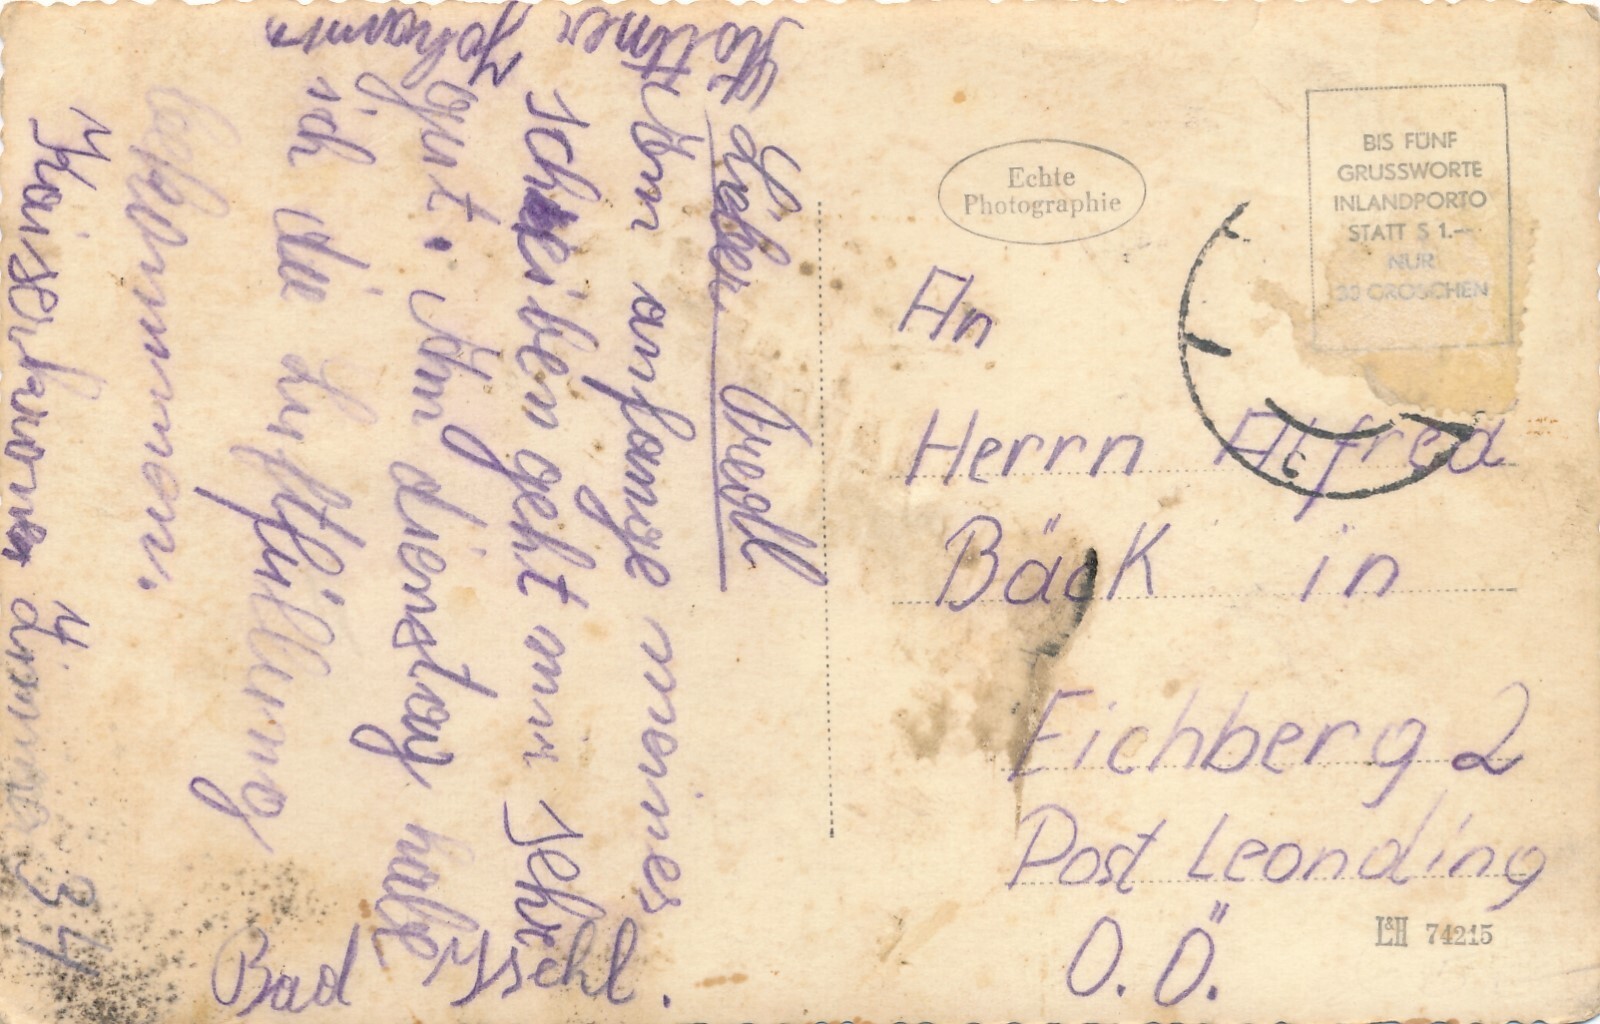 Stöttner
Johann
Lieber Fredl
Üm anfange meines
schreiben geht mir sehr
gut. Üm dienstag habe
ich die Luftfüllung
bekommen.
Kaiserkrone Zimmer 34
Bad Ischl.
Echte
Photographie
BIS FÜNF
GRUSSWORTE
INLANDPORTO
STATT S 1.--
NUR
30 GROSCHEN
An
Herrn Alfred
Bäck in
Eichberg 2
Post Leonding
O.Ö.
L&H 74215